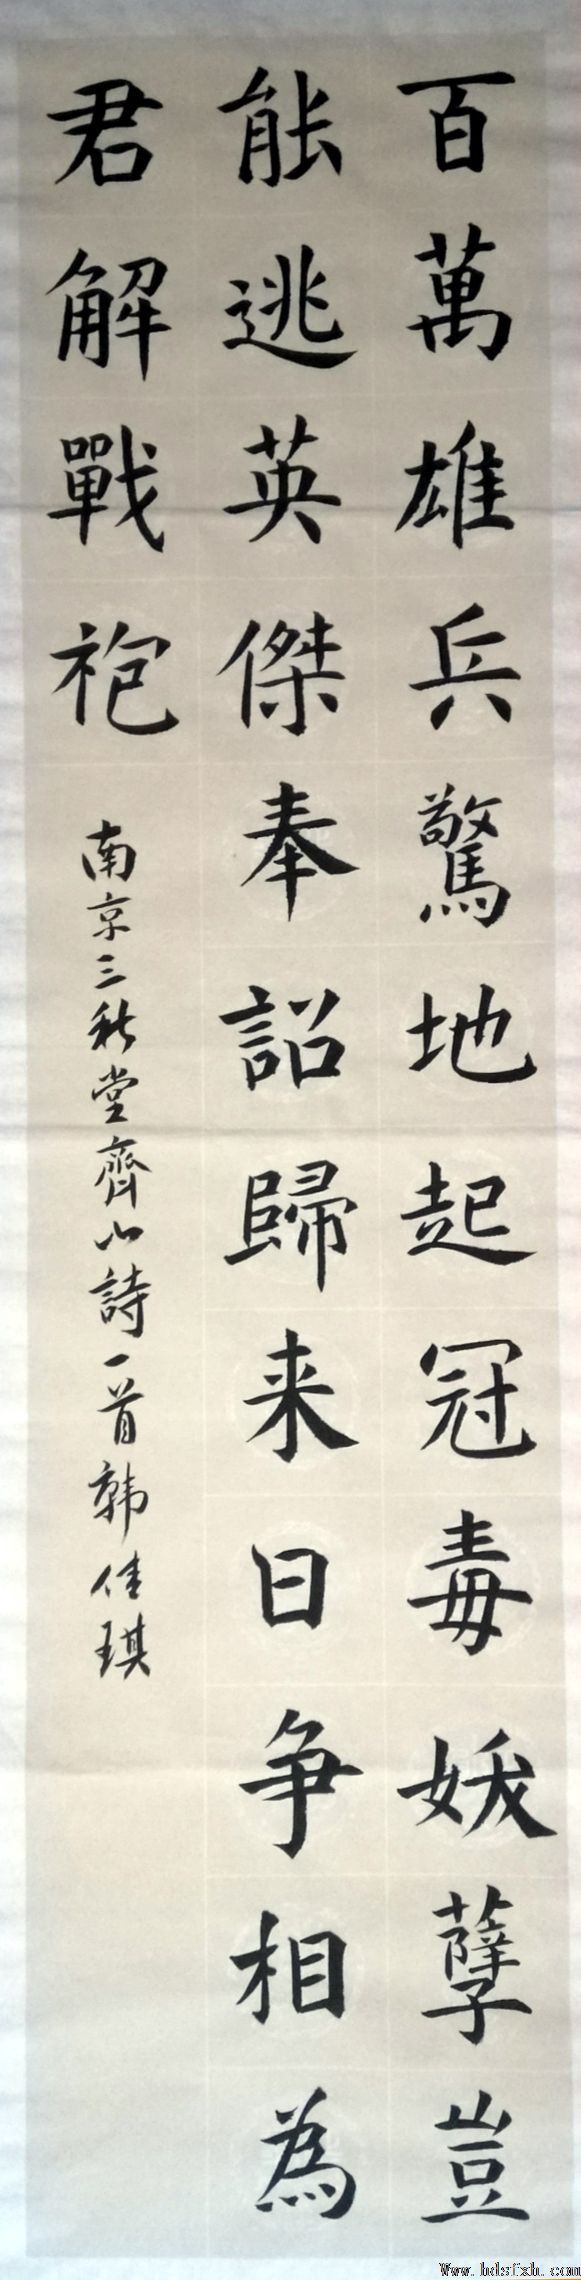 百萬雄兵驚地起冠毒妖孽豈
能逃英傑奉詔歸来日争相為
君解戰袍
南京三秋堂齊山詩一首韩佳琪
Www.hdsfxh.com